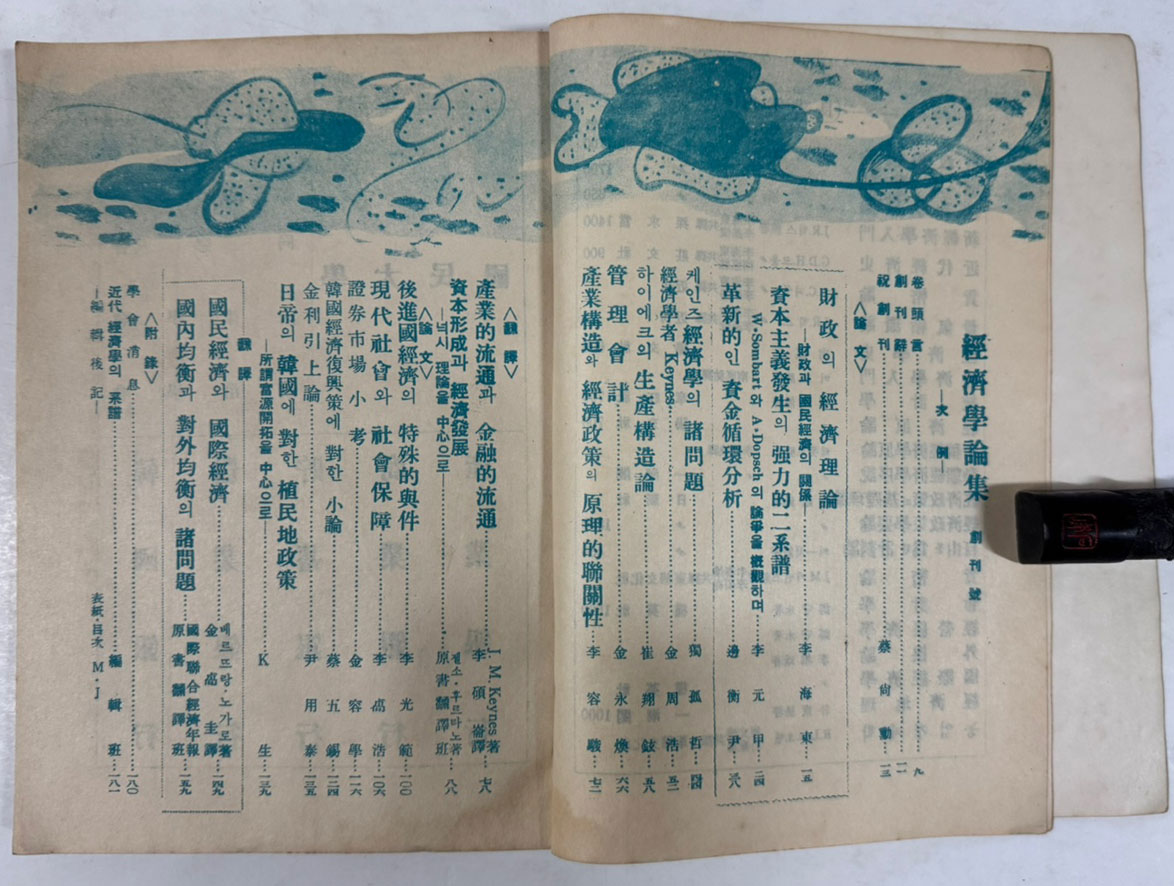 經濟學論集 創刊號
—次例—
卷頭言……九
創刊辭……一一
祝創刊……蔡尙勳…一三
〈論文〉
財政의 經濟理論……李海東…一五
—財政과 國民經濟의 關係
資本主義發生의 强力的二系譜……李元甲…二四
W·Sombart와 A·Dopsch의 論爭을 槪觀하며
革新的인 資金循環分析……邊衡尹…三八
케인즈經濟學의 諸問題……獨孤哲…四四
經濟學者 Keynes……金周浩…五二
하이에크의 生產構造論……崔翔鉉…五八
管理會計……金永煥…六六
產業構造와 經濟政策의 原理的聯關性…李容駿…七二
〈飜譯〉
產業的流通과 金融的流通……J. M. Keynes著 李碩崙譯…七八
資本形成과 經濟發展……原書飜譯班…八八
—넉시 理論을 中心으로—
〈論文〉
後進國經濟의 特殊的與件……李光範…一〇〇
現代社會와 社會保障……李卨浩…一〇六
證券市場小考……金容學…一一六
韓國經濟復興策에 對한 小論……蔡五錫…一二四
金利引上論……尹用泰…一三五
日帝의 韓國에 對한 植民地政策……K生…一三九
—所謂富源開拓을 中心으로—
飜譯
國民經濟와 國際經濟……베르뜨랑·노가로著 金卨圭譯…一四九
國內均衡과 對外均衡의 諸問題…國際聯合經濟年報 原書飜譯班…一五九
〈附錄〉
學會消息……一八〇
近代經濟學의 系譜……編輯班…一八一
—編輯後記—
表紙·目次 M·J